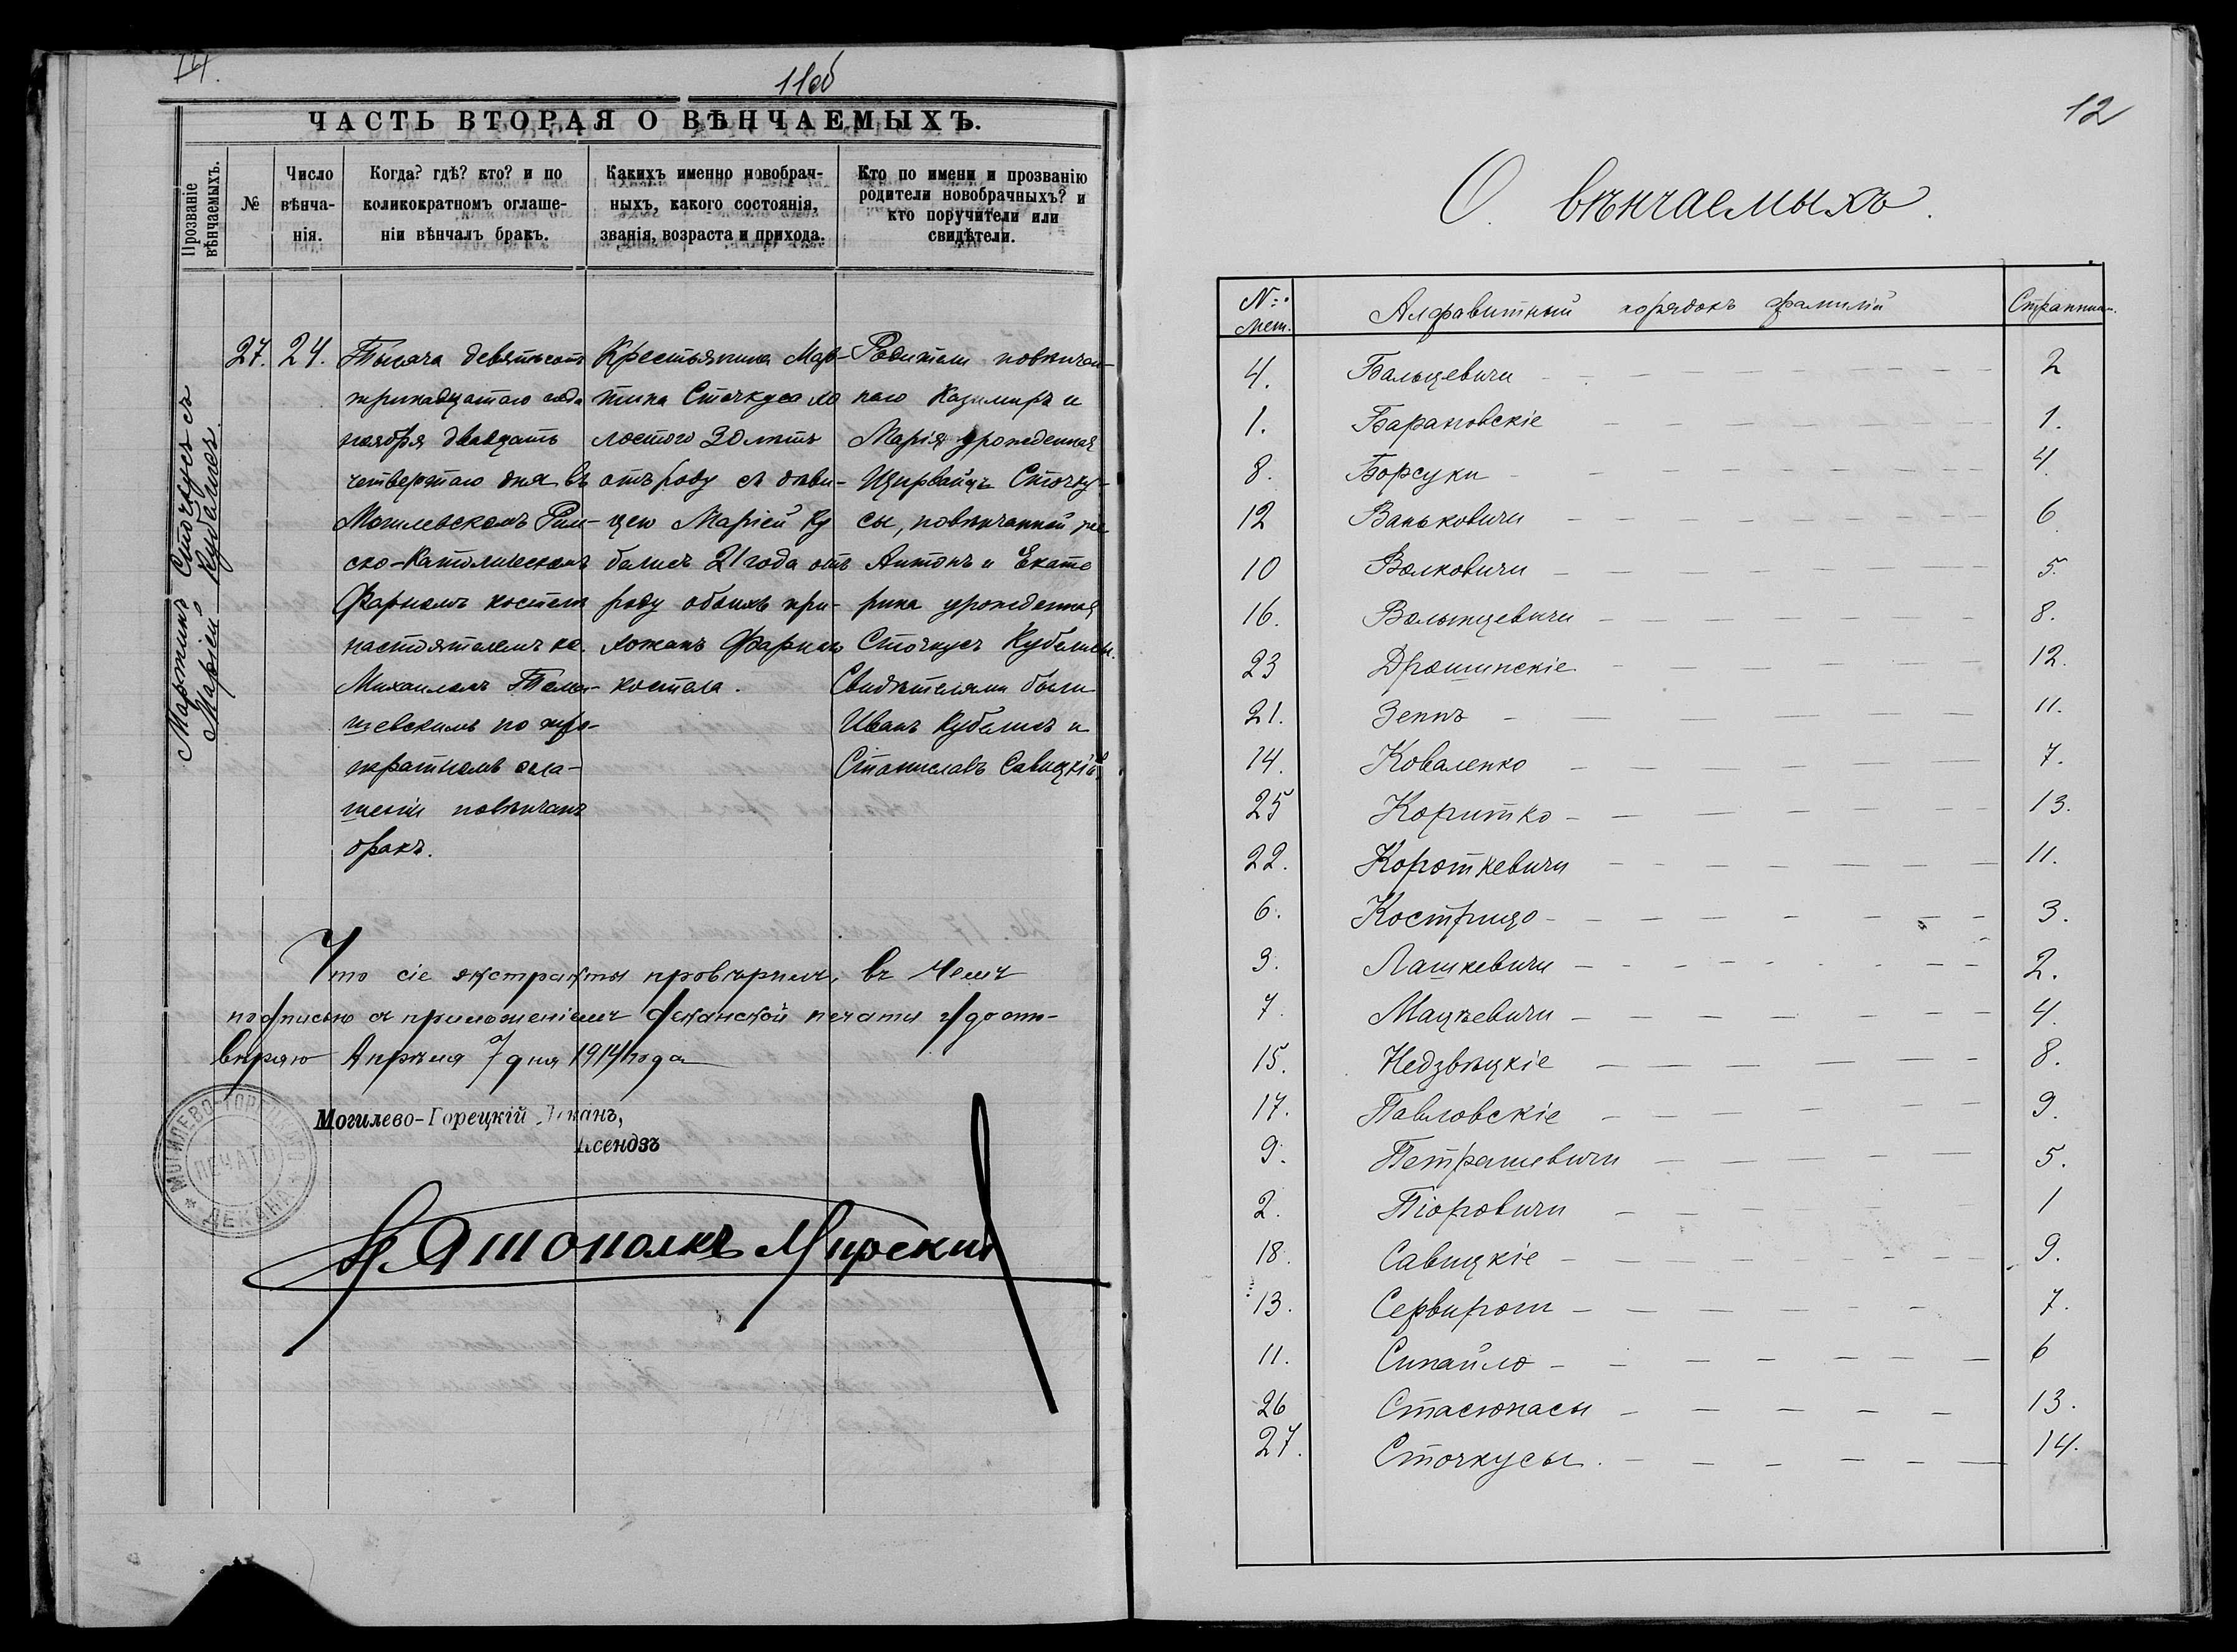 14.
11об
ЧАСТЬ ВТОРАЯ О ВѢНЧАЕМЫХЪ.
Прозваніе вѣнчаемыхъ.
№
Число вѣнча-нія.
Когда? гдѣ? кто? и по коликократномъ оглаше-ніи вѣнчалъ бракъ.
Какихъ именно новобрач-ныхъ, какого состоянія, званія, возраста и прихода.
Кто по имени и прозванію родители новобрачныхъ? и кто поручители или свидѣтели.
Мартинъ Сточкусъ съ
Маріей Кубалисъ.
27.
24.
Тысяча девятьсотъ
тринадцатаго года
ноября двадцать
четвертаго дня въ
Могилевскомъ Рим-
ско-Католическомъ
Фарномъ костелѣ
настоятелемъ кс.
Михаиломъ
шевскимъ по трех-
кратномъ огла-
шеніи повѣнчанъ
бракъ.
Крестьянина Мар-
тина Сточкуса хо
лостого 30 лѣтъ
отъ роду съ дѣви-
цею Маріей Ку
балисъ 21 года отъ
роду обоихъ при-
хожанъ Фарнаго
костела.
Родители повѣнчан-
наго Казимиръ и
Марія урожденная
Сточку-
сы, повѣнчанной же
Антонъ и Екате
рина урожденная
Сточкусъ Кубалисы.
Свидѣтелями были
Иванъ Кубалисъ и
Станиславъ Савицкій.
Что сіе экстракты провѣрилъ, въ чемъ
подписью съ приложеніемъ деканской печати удосто-
вѣряю Апрѣля 7 дня 1914 года
Могилево-Горецкій Деканъ,
Ксендзъ
МОГИЛЕВО-ГОРЕЦКАГО ДЕКАНА
ПЕЧАТЬ
Святополкъ Мирскій
12
О вѣнчаемыхъ.
№ Мет. Алфавитный порядокъ фамилій Страница.
4. Бальцевичи 2
1. Барановскіе 1.
8. Борсуки 4.
12 Ваньковичи 6
10 Волковичи 5.
16. Волынцевичи 8.
23 Дрошинскіе 12.
21. Зеппъ 11.
14. Коваленко 7.
25 Коритко 13.
22. Короткевичи 11.
6. Кострицо 3.
3. Лашкевичи 2.
7. Мацкевичи 4.
15. Недзвѣцкіе 8.
17. Павловскіе 9.
9. Петрашевичи 5.
2. Піоровичи 1
18. Савицкіе 9.
13. Сервирот 7.
11. Сипайло 6
26 Стасюнасы 13.
27. Сточкусы 14.